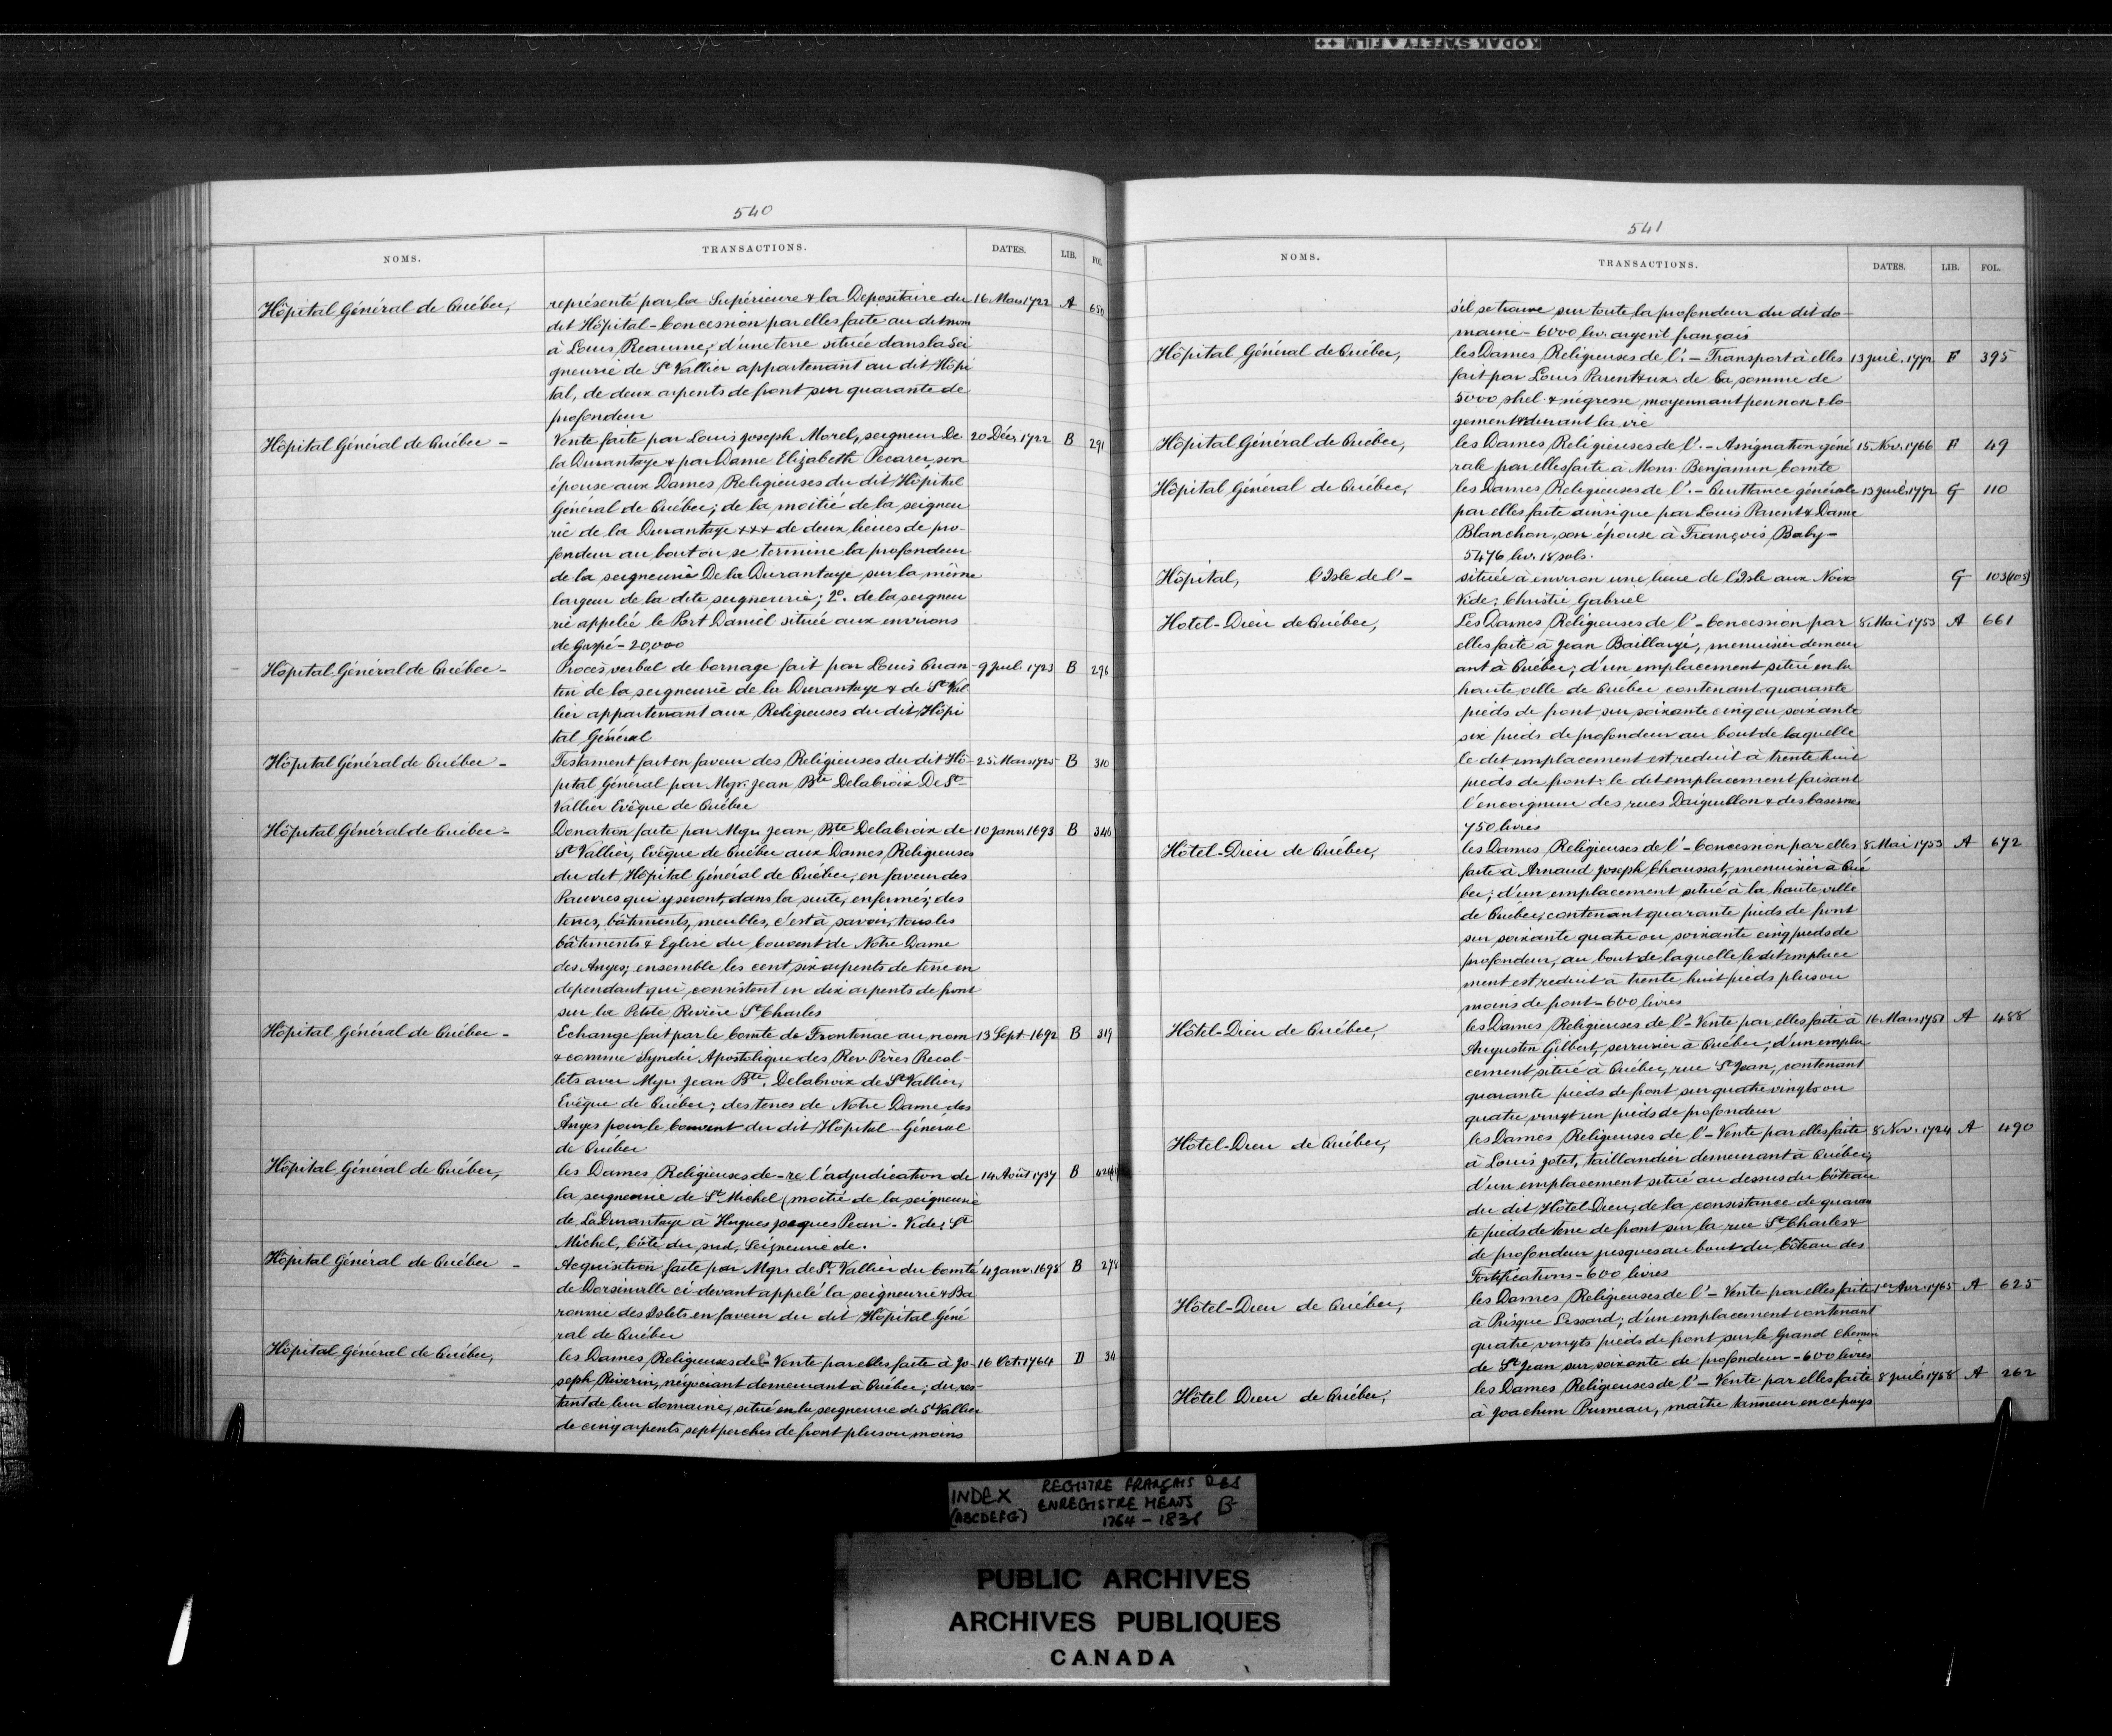 KODAK SAFETY FILM ++
540
NOMS. TRANSACTIONS. DATES. LIB. FOL.
Hôpital Général de Québec, représenté par la Supérieure & la Dépositaire du 16 Mars 1722 A 650
dit Hôpital - Concession par elles faite au dit nom
à Louis Reaume; d'une terre située dans la Sei
gneurie de St Vallier appartenant au dit Hôpi
tal, de deux arpents de front sur quarante de
profondeur
Hôpital Général de Québec - Vente faite par Louis Joseph Morel, seigneur De 20 Déc. 1722 B 291
la Durantaye & par Dame Elizabeth Pecarer, son
épouse aux Dames Religieuses du dit Hôpital
Général de Québec; de la moitié de la seigneu
rie de la Durantaye +++ de deux lieues de pro-
fondeur au bout ou se termine la profondeur
de la seigneurie De la Durantaye sur la même
largeur de la dite seigneurie; 2º. de la seigneu
rie appelée le Port Daniel située aux environs
de Gaspé - 20,000
Hôpital Général de Québec - Procès verbal de bornage fait par Louis Quan- 9 Juil. 1723 B 296
tin de la seigneurie de la Durantaye & de St Val
lier appartenant aux Religieuses du dit Hôpi
tal Général
Hôpital Général de Québec - Testament fait en faveur des Religieuses du dit Hô- 25 Mars 1725 B 310
pital Général par Mgr. Jean Bte Delacroix De St
Vallier Evêque de Québec
Hôpital Général de Québec - Donation faite par Mgr Jean Bte Delacroix de 10 Janv. 1693 B 346
St Vallier, Evêque de Québec aux Dames Religieuses
du dit Hôpital Général de Québec, en faveur des
Pauvres qui y seront, dans la suite, enfermés; des
terres, bâtiments, meubles, c'est à savoir, tous les
bâtiments & Eglise du Couvent de Notre Dame
des Anges; ensemble les cent six arpents de terre en
dependant qui consistent en dix arpents de front
sur la Petite Rivière St Charles
Hôpital Général de Québec - Echange fait par le Comte de Frontinac au nom 13 Sept. 1692 B 319
& comme Syndic Apostolique des Rev. Pères Recol-
lets avec Mgr. Jean Bte. Delacroix de St Vallier,
Evêque de Québec; des terres de Notre Dame des
Anges pour le Couvent du dit Hôpital-Général
de Québec
Hôpital Général de Québec, les Dames Religieuses de - re l'adjudication de 14 Août 1737 B
la seigneurie de St Michel (moitié de la seigneurie
de La Durantaye à Hugues Jacques Pean - Vide; St
Michel, Côté du sud, Seigneurie de.
Hôpital Général de Québec - Acquisition faite par Mgr. de St. Vallier du Comté 4 Janv. 1698 B 278
de Dorsinville ci-devant appelé la seigneurie & Ba
ronnie des Islets en faveur du dit Hôpital Géné
ral de Québec
Hôpital Général de Québec, les Dames Religieuses de l' - Vente par elles faite à Jo- 16 Oct. 1764 D 34
seph Riverin, négociant demeurant à Québec; du res-
tant de leur domaine, situé en la seigneurie de St Vallier
de cinq arpents sept perches de front plus ou moins
541
NOMS. TRANSACTIONS. DATES. LIB. FOL.
s'il se trouve sur toute la profondeur du dit do-
maine - 6000 liv. argent français
Hôpital Général de Québec, les Dames Religieuses de l'. - Transport à elles 13 Juil. 1772 F 395
fait par Louis Parent & ux: de la somme de
5000 shel. & négresse, moyennant pension & lo-
gement & durant la vie
Hôpital Général de Québec, les Dames Religieuses de l'. - Assignation géné 15 Nov. 1766 F 49
rale par elles faite à Mons. Benjamin Comte
Hôpital Général de Québec, les Dames Religieuses de l'. - Quittance générale 13 Juil. 1772 G 110
par elles faite ainsi que par Louis Parent & Dame
Blanchon, son épouse à François Baby -
5476 liv. 18 sols.
Hôpital, l'Isle de l' - située à environ une lieue de l'Isle aux Noix G 103(105)
Vide; Christie Gabriel
Hotel-Dieu de Québec, Les Dames Religieuses de l' - Concession par 8 Mai 1753 A 661
elles faite à Jean Baillargé, menuisier demeur
ant à Québec; d'un emplacement situé en la
haute ville de Québec contenant quarante
pieds de front sur soixante cinq ou soixante
six pieds de profondeur au bout de laquelle
le dit emplacement est reduit à trente huit
pieds de front: le dit emplacement faisant
l'encoignure des rues Daiguillon & des Casernes
750 livres
Hôtel-Dieu de Québec, les Dames Religieuses de l' - Concession par elles 8 Mai 1753 A 672
faite à Arnaud Joseph Chaussat, menuisier à Qué
bec; d'un emplacement situé à la haute ville
de Québec, contenant quarante pieds de front
sur soixante quatre ou soixante cinq pieds de
profondeur, au bout de laquelle le dit emplace
ment est reduit à trente huit pieds plus ou
moins de front - 600 livres
Hôtel-Dieu de Québec, les Dames Religieuses de l' - Vente par elles faite à 16 Mars 1751 A 488
Augustin Gilbert, serrurier à Québec; d'un empla
cement situé à Québec, rue St Jean, contenant
quarante pieds de front sur quatre vingts ou
quatre vingt un pieds de profondeur
Hôtel-Dieu de Québec, les Dames Religieuses de l' - Vente par elles faite 8 Nov. 1724 A 490
à Louis Jotet, taillandier demeurant à Québec,
d'un emplacement situé au dessus du Côteau
du dit Hôtel Dieu, de la consistance de quaran
te pieds de terre de front sur la rue St Charles &
de profondeur jusques au bout du Côteau des
Fortifications - 600 livres
Hôtel-Dieu de Québec, les Dames Religieuses de l' - Vente par elles faite 1er Avr. 1765 A 625
à Prisque Lessard; d'un emplacement contenant
quatre vingts pieds de front sur le Grand Chemin
de St Jean sur soixante de profondeur - 600 livres
Hôtel Dieu de Québec, les Dames Religieuses de l' - Vente par elles faite 8 Juil. 1758 A 262
à Joachim Primeau, maître tanneur en ce pays
INDEX REGISTRE FRANÇAIS DES
(ABCDEFG) ENREGISTREMENTS B-
1764 - 1831
PUBLIC ARCHIVES
ARCHIVES PUBLIQUES
CANADA